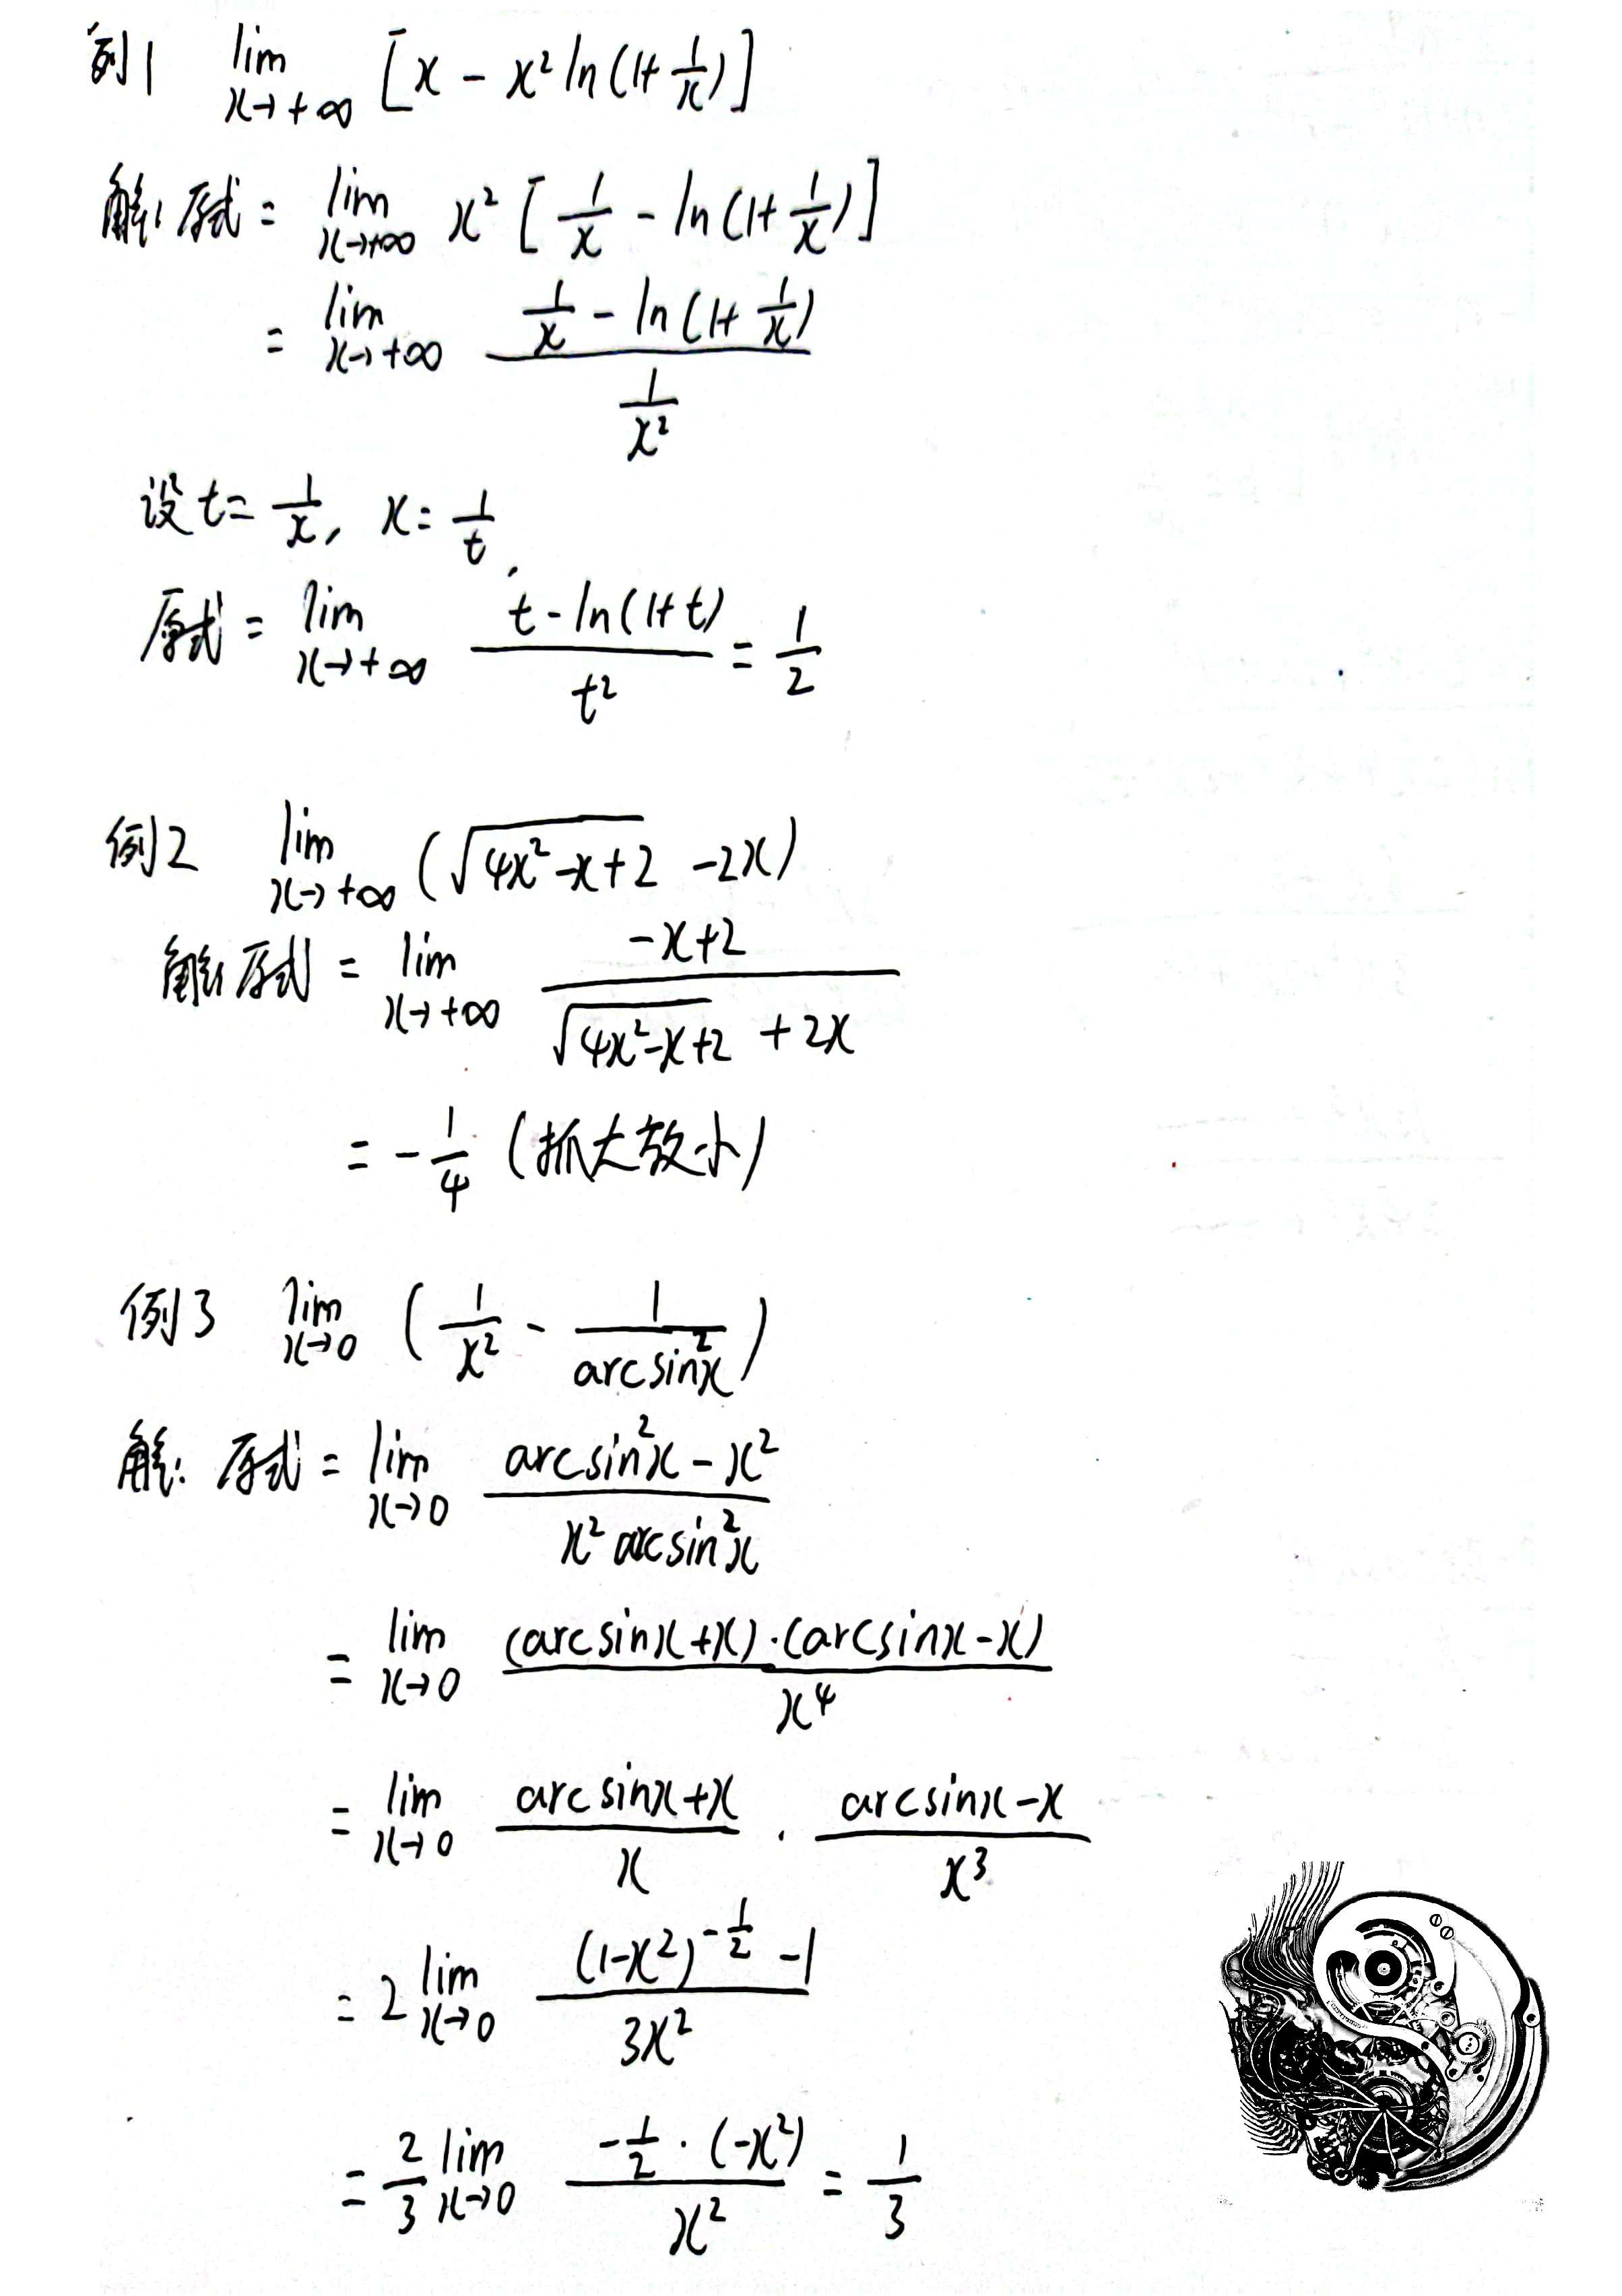 例1 lim x→+∞ [x - x² ln(1+1/x)]
解: 原式 = lim x→+∞ x² [1/x - ln(1+1/x)]
= lim x→+∞ (1/x - ln(1+1/x)) / (1/x²)
设 t = 1/x, x = 1/t.
原式 = lim x→+∞ (t - ln(1+t)) / t² = 1/2
例2 lim x→+∞ (√(4x²-x+2) - 2x)
解: 原式 = lim x→+∞ (-x+2) / (√(4x²-x+2) + 2x)
= -1/4 (抓大放小)
例3 lim x→0 (1/x² - 1/arcsin²x)
解: 原式 = lim x→0 (arcsin²x - x²) / (x² arcsin²x)
= lim x→0 (arcsinx+x)·(arcsinx-x) / x⁴
= lim x→0 (arcsinx+x)/x · (arcsinx-x)/x³
= 2 lim x→0 ((1-x²)^(-1/2) - 1) / 3x²
= 2/3 lim x→0 (-1/2·(-x²)) / x² = 1/3